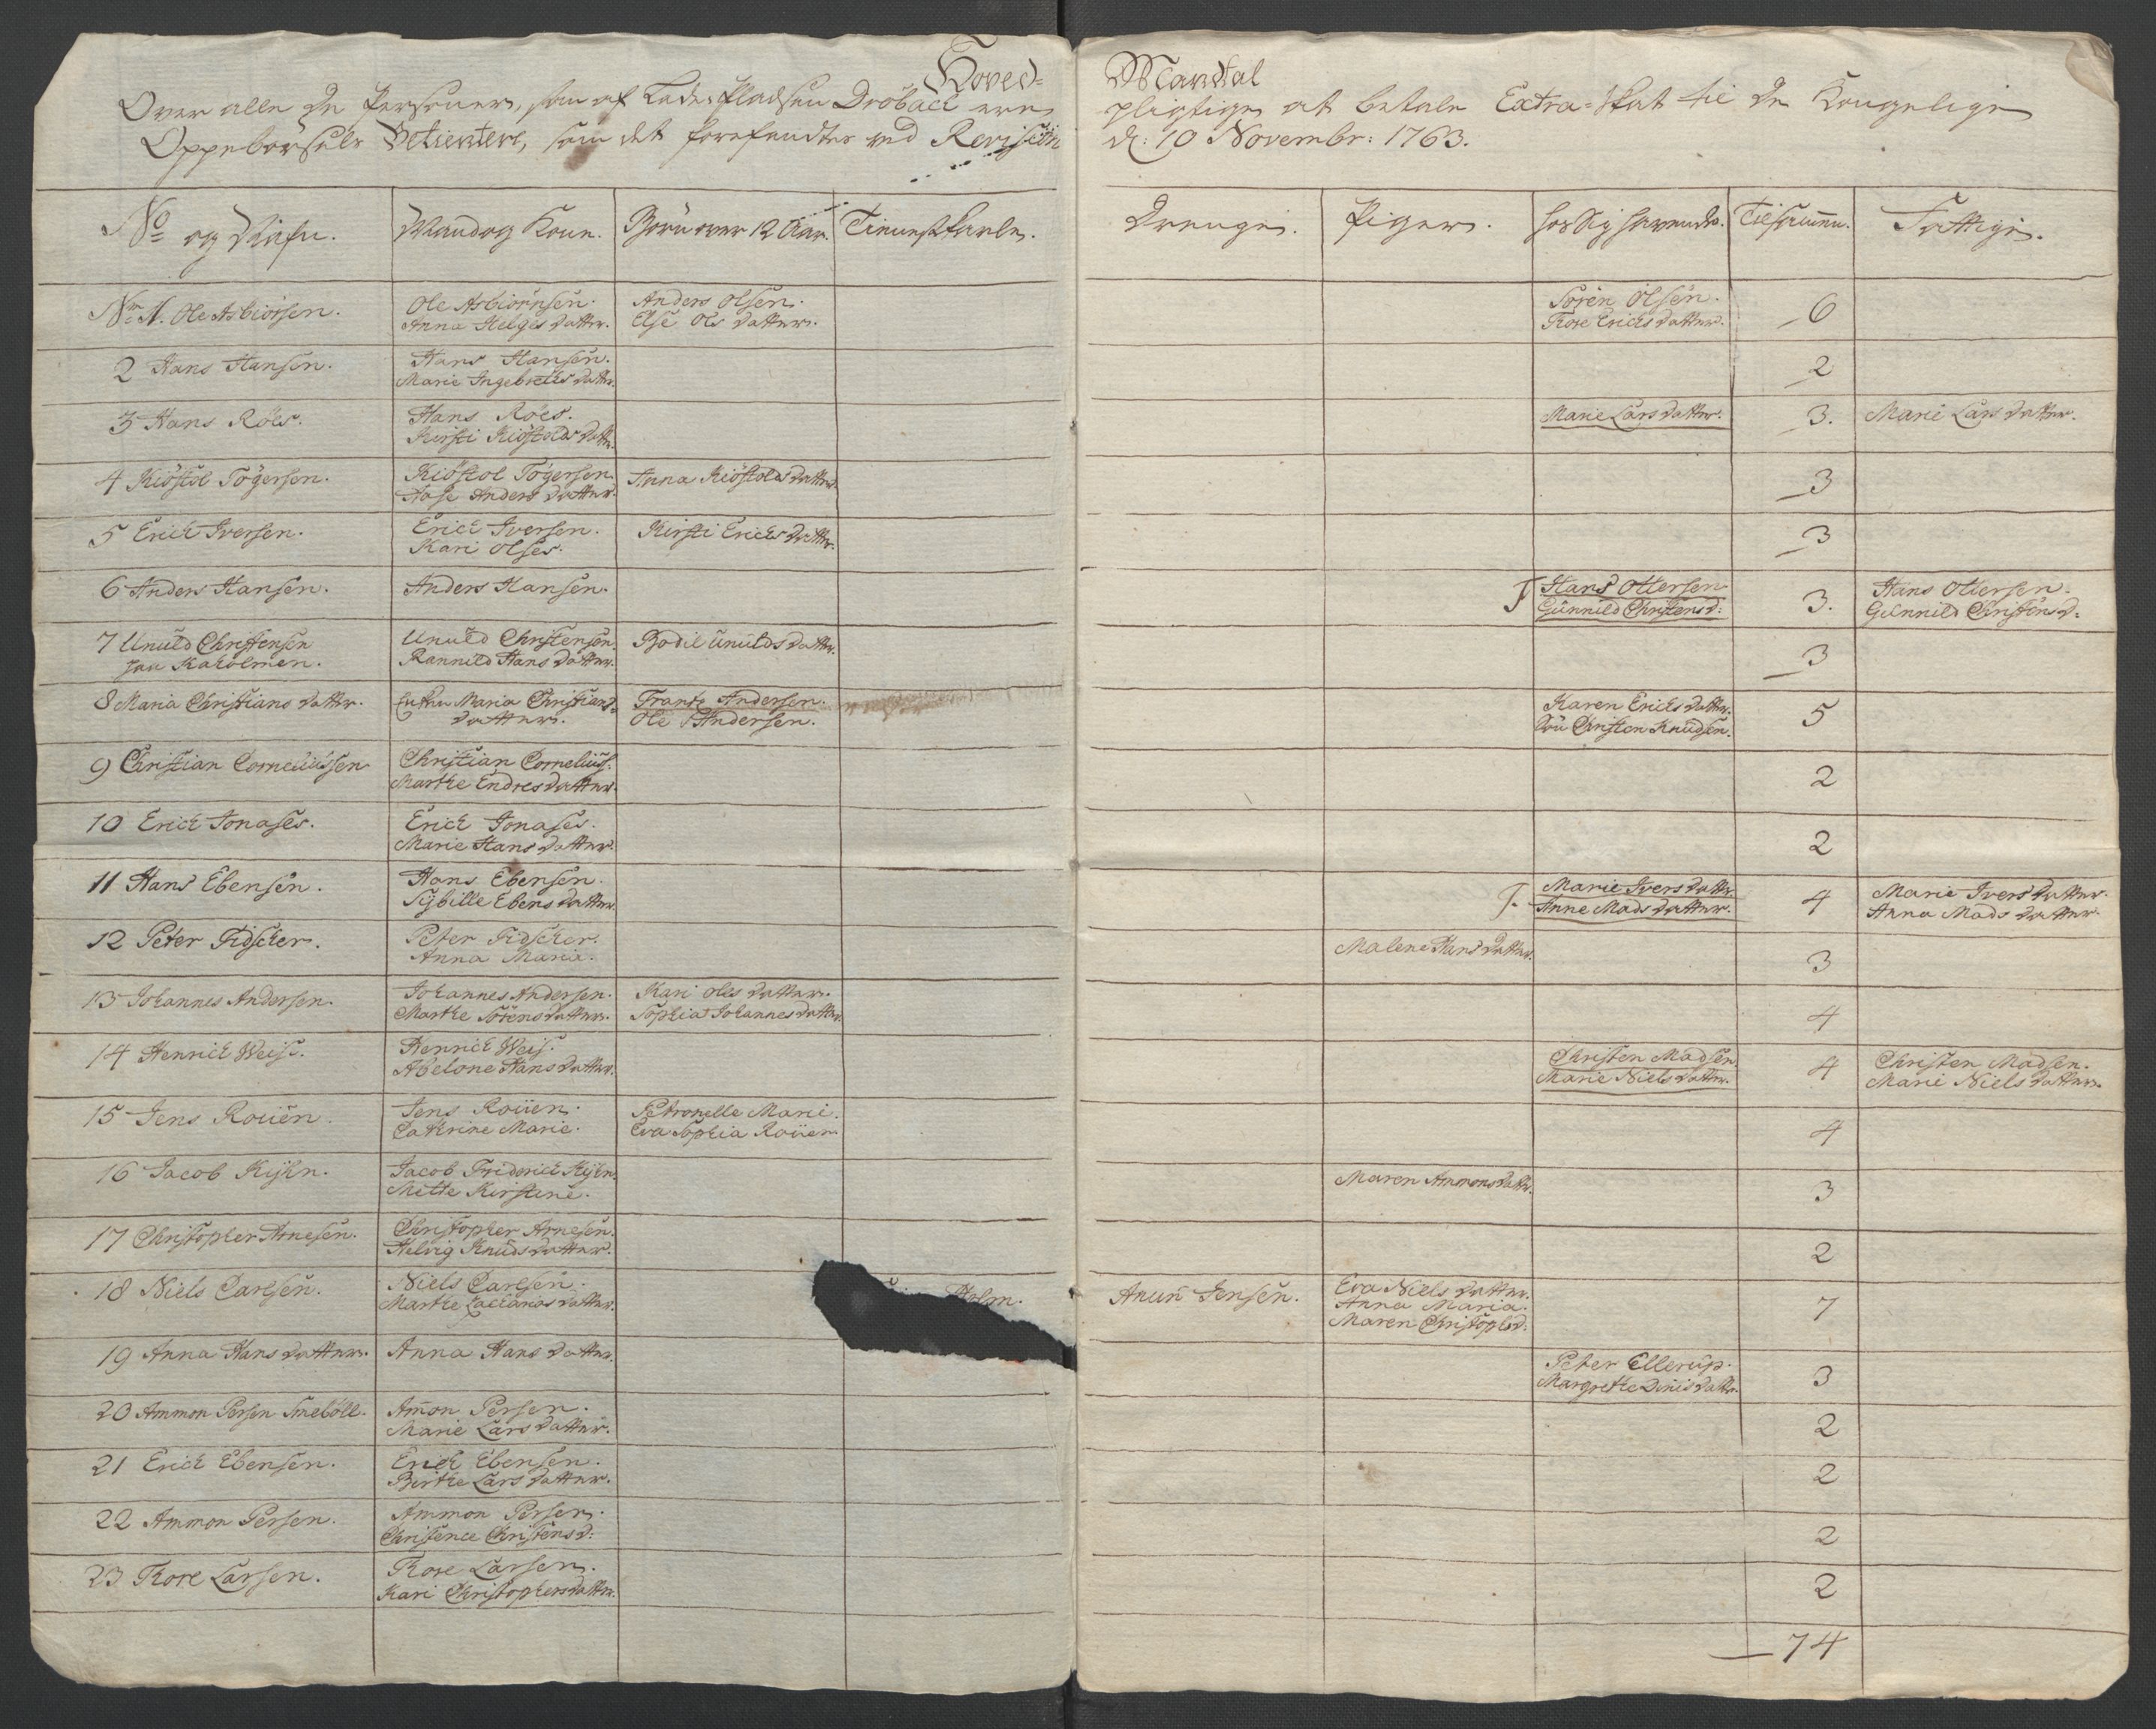 Hoved-
Mandtal
Over alle de Personer, som af Lade-Pladsen Dröback ere
pligtige at betale Extra-Skat til de Kongelige
Oppebørsels Betientere, som det forefandtes ved Revision
d: 10 Novembr: 1763.
No og Nafn. Mand og Kone. Börn over 12 Aar. Tieneste Karle. Drenge. Piger. hos Sig havende. Tilsamen. Fattige.
No 1. Ole Asbiörsen. Ole Asbiörnsen. Anders Olsen. Sören Olsen. 6
Anna Helges datter. Else Ols datter. Tore Erichs datter.
2 Hans Hansen. Hans Hansen. 2
Marie Ingebrets datter.
3 Hans Röes. Hans Röes. Marie Lars datter. 3. Marie Lars datter.
Kirsti Kiöstolds datter.
4 Kiöstol Tögersen. Kiöstol Tögersen. Anna Kiöstolds datter. 3
Aase Anders datter.
5 Erich Iversen. Erich Iversen. Kirsti Erichs datter. 3
Kari Olses.
6 Anders Hansen. Anders Hansen. Hans Ottersen. 3. Hans Ottersen.
Gunnild Christens d: Gunnild Christens d:
7 Unuld Christensen Unuld Christensen. Bodil Unulds datter. 3
paa Kaholmen. Rannild Hans datter.
8 Maria Christians datter. Enken Maria Christians- Frantz Andersen. Karen Erichs datter. 5
datter. Ole Andersen. Christen Knudsen.
9 Christian Corneliussen Christian Cornelius. 2
Marthe Endres datter.
10 Erich Jonases. Erich Jonases. 2
Marie Hans datter.
11 Hans Ebensen. Hans Ebensen. Marie Ivers datter 4 Marie Ivers datter.
Sybille Ebens datter. Anne Mads datter. Anna Mads datter.
12 Peter Fidscher. Peter Fidscher. Malene Hans datter. 3
Anna Maria.
13 Johannes Andersen. Johannes Andersen. Kari Oles datter. 4
Marthe Sörens datter. Sophia Johannes datter.
14 Henrich Weis. Henrich Weis. Christen Madsen 4 Christen Madsen.
Abelone Hans datter. Marie Niels datter. Marie Niels datter.
15 Jens Roüen. Jens Roüen. Petronelle Marie. 4
Cathrine Marie. Eva Sophia Roüen.
16 Jacob Kyhn. Jacob Friderich Kyhn. Maren Ammons datter. 3
Mette Kirstine.
17 Christopher Arnesen. Christopher Arnesen. 2
Helvig Knuds datter.
18 Niels Carlsen. Niels Carlsen. Holm. Anun Jensen. Eva Niels datter. 7
Marthe Zacharias datter. Anna Maria.
Maren Christophs d:
19 Anna Hans datter. Anna Hans datter. Peter Ellerup. 3
Margrethe Dinis datter.
20 Ammon Persen Smeböll. Amon Persen. 2
Marie Lars datter.
21 Erich Ebensen. Erich Ebensen. 2
Birthe Lars datter.
22 Ammon Persen. Ammon Persen. 2
Christence Christens d:
23 Tore Larsen. Tore Larsen. 2
Kari Christophers datter.
74